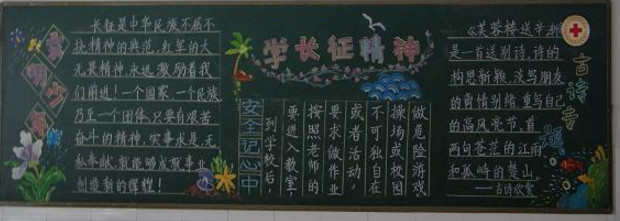 长征是中华民族不屈不
挠精神的典范,红军的大
无畏精神,永远激励着我
们前进!一个国家,一个民族
乃至一个团体,只要有艰苦
奋斗的精神,实事求是,无
私奉献,就能够成就事业
创造新的辉煌!
学长征精神
安全记心中
到学校后,
要进入教室,
按照老师的
要求做作业
或者活动,
不可独自在
操场或校园
做危险游戏
《芙蓉楼送辛渐
是一首送别诗,诗的
构思新颖,淡写朋友
的离情别绪,重写自己
的高风亮节,首
两句苍茫的江雨
和孤峙的楚山。
——古诗欣赏
古诗